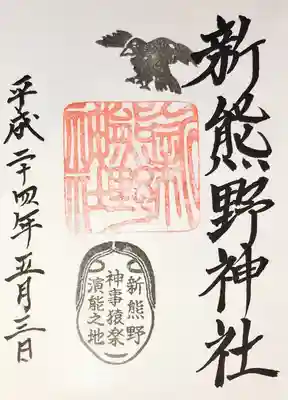 新熊野神社
新熊野神社
新熊野
神事猿楽
演能之地
平成二十四年五月三日